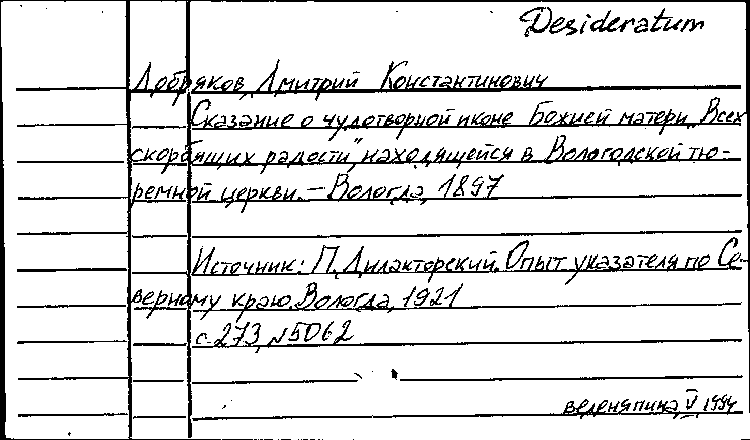 Desideratum
Добряков, Дмитрий Константинович
Сказание о чудотворной иконе Божией матери „Всех
скорбящих радости", находящейся в Вологодской тю-
ремной церкви. – Вологда, 1897
Источник: П. Дилакторский. Опыт указателя по Се-
верному краю. Вологда, 1921
с. 273, №5062
веденяпина, V, 1994